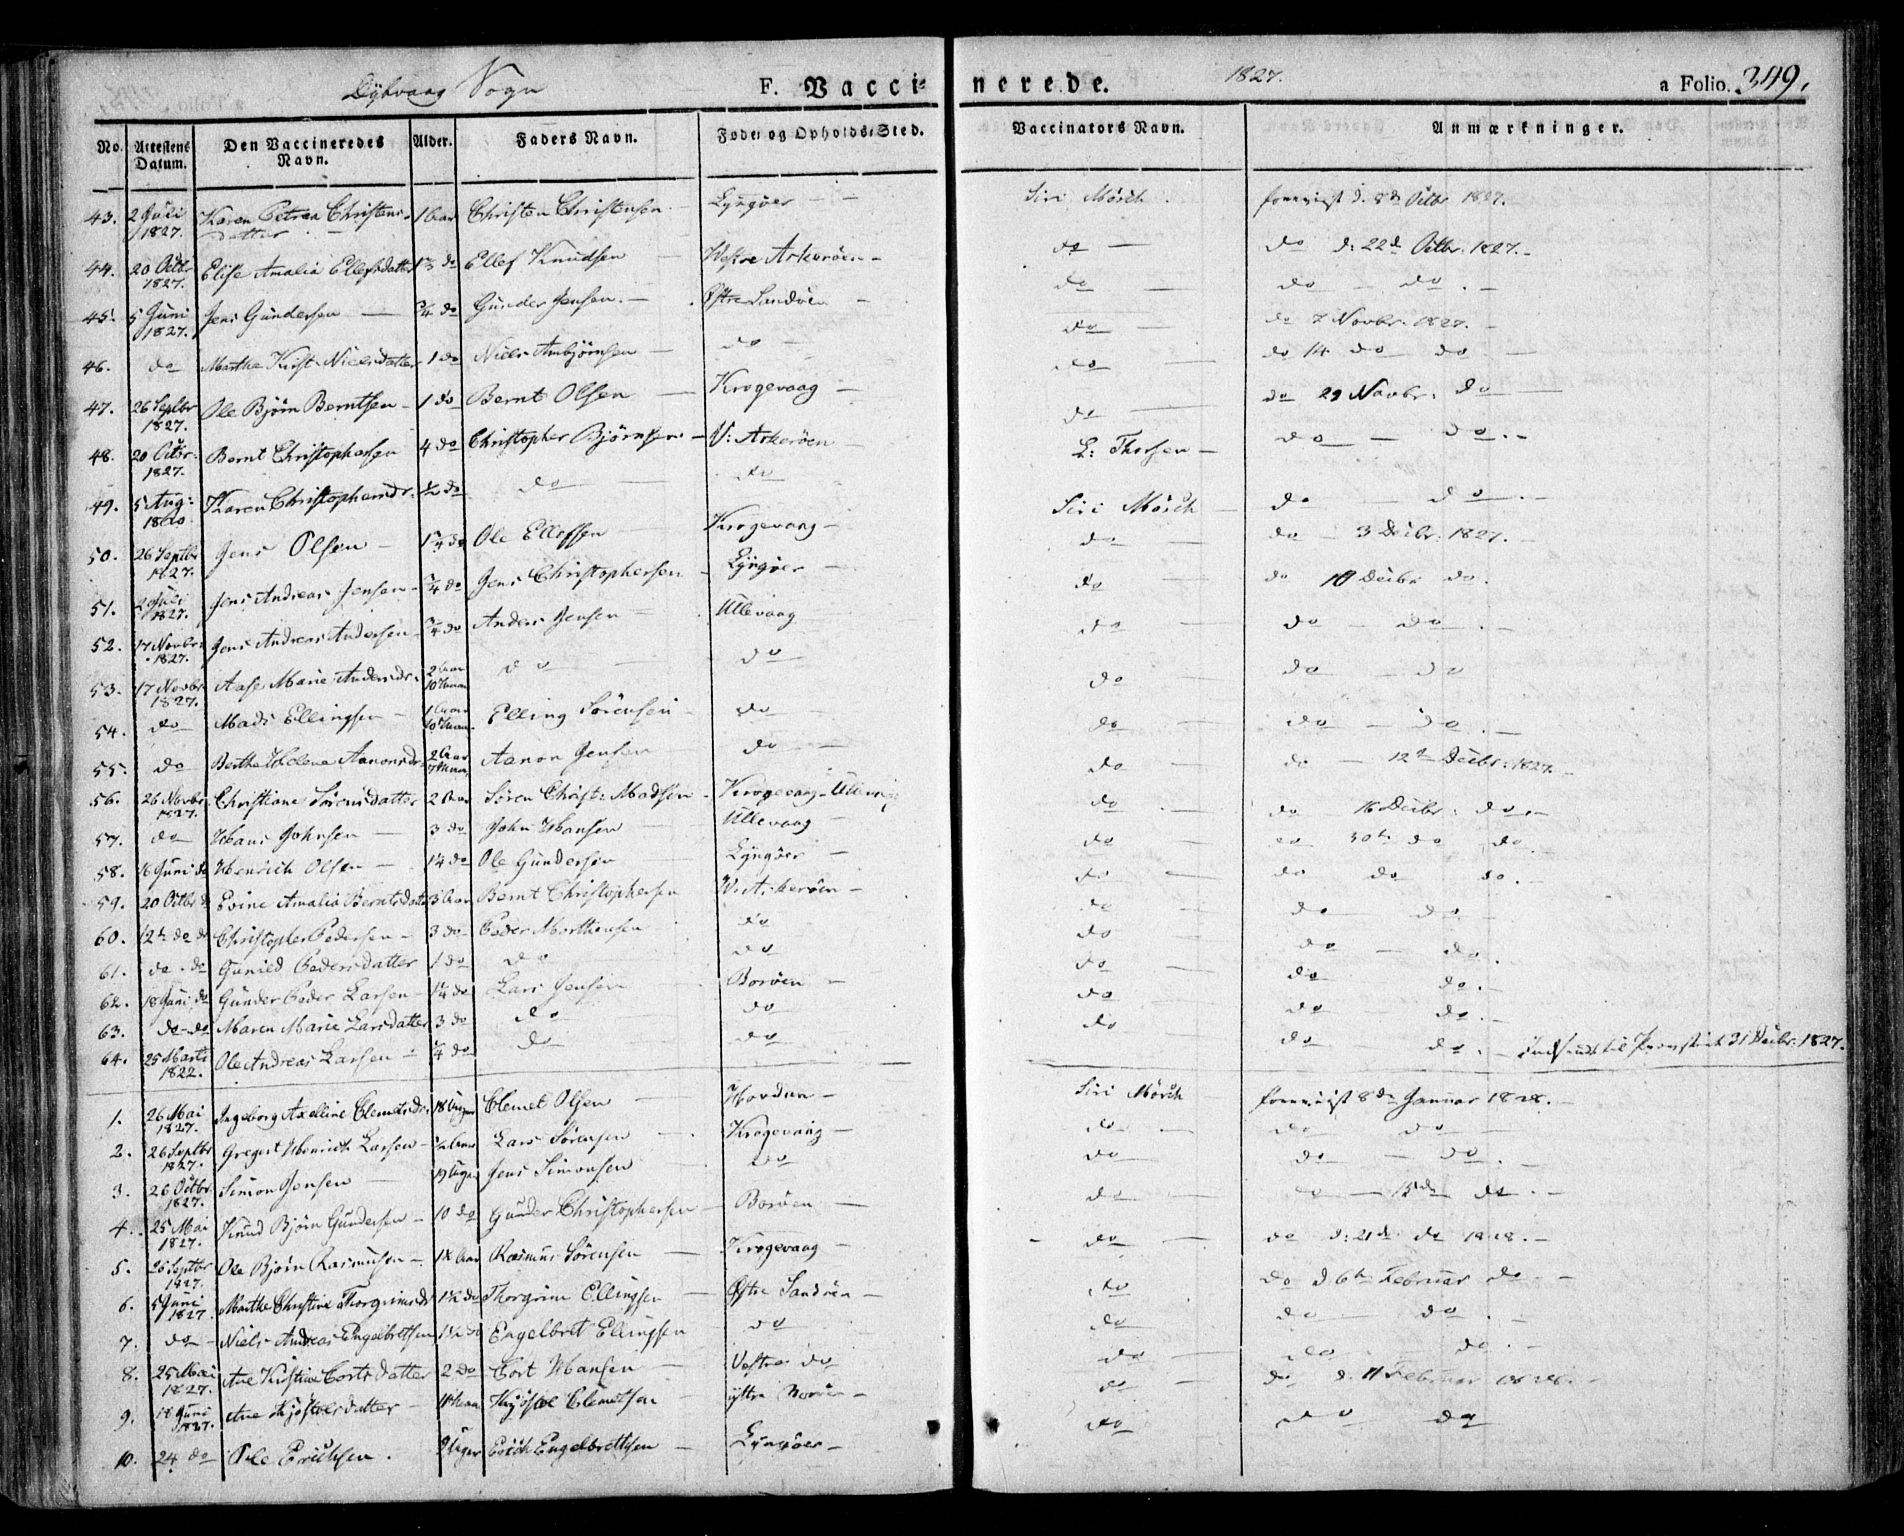 Dybvaag Sogn F. Vaccinerede. 1827. a Folio 349.
No. Attestens Datum. Den Vaccineredes Navn. Alder. Faders Navn. Føde- og Opholds-Sted. Vaccinators Navn. Anmærkninger.
43. 2 Juli 1827. Karen Petrea Christensdatter 1 Aar Christen Christensen Lyngøer Siri Mörch foreviist d. 8de Octbr 1827.
44. 20 Octbr 1827. Elise Amalia Ellefsdatter do Ellef Knudsen Westre Askerøen do do d: 22de Octbr. 1827.
45. 5 Juni 1827. Jens Gundersen 3/4 do Gunder Jensen Østre Sandøen do do do
46. do Marthe Kirst. Nielsdatter 1 do Niels Anbjørnsen do do do 7 Novbr. 1827.
47. 26 Septbr 1827. Ole Bjørn Berntsen 1 do Bernt Olsen Krogevaag do do 14 do do
48. 20 Octbr. 1827. Bernt Christophersen 4 do Christopher Bjørnsen V: Askerøen do do 29 Novbr. do
49. 5 Aug: Karen Christophersdr. 1/2 do do do L: Thorsen do do
50. 26 Septbr 1827. Jens Olsen do Ole Ellefsen Krogevaag Siri Mörch do do
51. 2 Juli 1827. Jens Andreas Jensen 3/4 do Jens Christophersen Lyngøer do do 3 Decbr. 1827.
52. 17 Novbr. 1827. Jens Andreas Andersen 3/4 do Anders Jensen Ullevaag do do 10 Decbr do.
53. 17 Novbr. 1827. Aase Marie Andersdr. 2 Aar 10 do do do do do
54. do Mads Ellingsen 1 Aar 10 Elling Sørensen do do do do
55. do Berthe Helene Aanonsdr. 2 Aar Aanon Jensen do do do do
56. 26 Novbr. 1827. Christiane Sørensdatter 2 Aar Søren Christ: Madsen Krogevaag do do 12te Decbr. 1827.
57. do Hans Johnsen 3 do John Hansen Ullevaag do do 16 Decbr. do
58. 16 Juni do Henrich Olsen do Ole Gundersen Lyngøer do do 30te do do
59. 20 Octbr do Evine Amalia Berntsdatter 3 Aar Bernt Christophersen V. Askerøen do do do do.
60. 12te do do Christopher Pedersen 3 do Peder Morthensen do do do do
61. do do Gunild Pedersdatter 1 do do do do do do
62. 18 Juni do Gunder Peder Larsen 1/4 do Lars Jensen Borøen do do do
63. do do Maren Marie Larsdatter 3 do do do do do do
64. 25 Marts 1822. Ole Andreas Larsen do do do do do do. Indsendt til Provstiet 31 Decbr. 1827.
1. 26 Mai 1827. Ingeborg Axelline Clemetsdr. 18 Uger Clemet Olsen Hovdan Siri Mörch foreviist 8de Januar 1828.
2. 26 Septbr 1827. Gregert Henrich Larsen 1/2 Aar Lars Sørensen Krogevaag do do do
3. 26 Octbr. 1827. Simon Jensen 19 Uger Jens Simonsen do do do do
4. 25 Mai 1827. Knud Bjørn Gundersen 10 do Gunder Christophersen Borøen do do 15de do
5. 26 Septbr 1827. Ole Bjørn Rasmussen Aar Rasmus Sørensen Krogevaag do do d: 21de do 1828.
6. 5 Juni 1827 Marthe Christine Thorgrimsdr 1 1/2 do Thorgrim Ellingsen Østre Sandøen do do d 6te Februar do
7. do Niels Andreas Engelbretsen 1 1/2 do Engelbret Ellingsen do do do do
8. 25 Mai 1827. Ane Kirstine Cortsdatter 2 do Cort Hansen Vestre do do do do.
9. 18 Juni 1827. Ane Kjøstelsdatter Aar Kjøstel Clemetsen yttre Borøen do do d. 11 Februar 1828.
10. 24 do Ole Erichsen 9 Uger Erich Engelbrethsen Lyngøer do do do